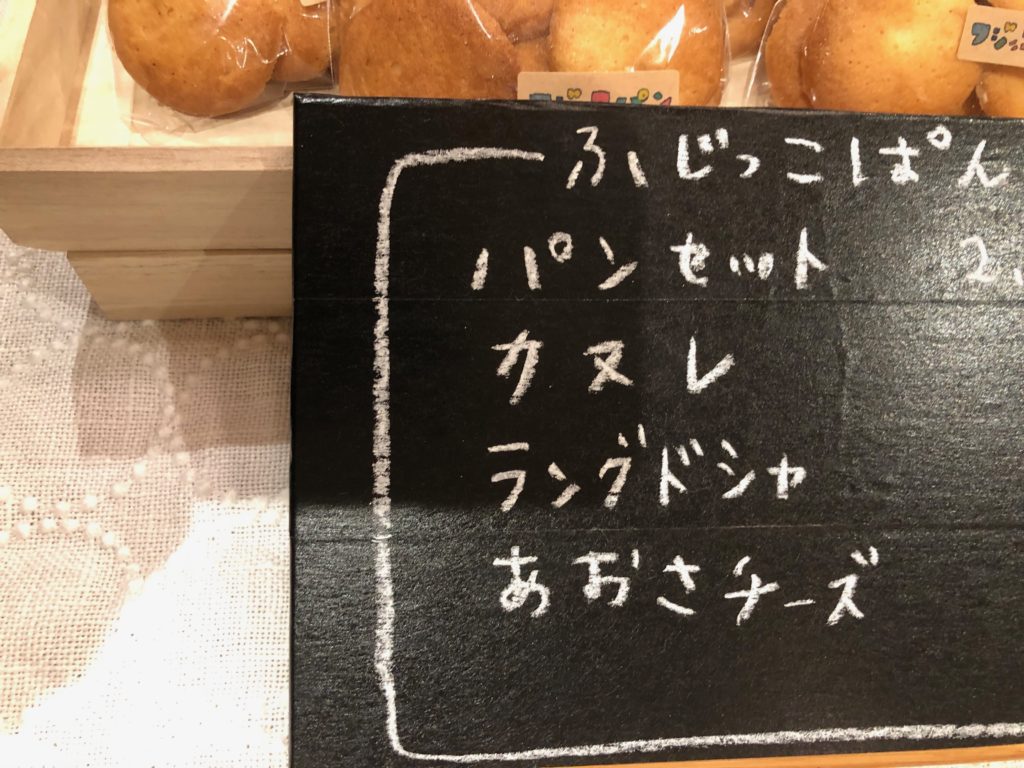 フジッ
ふじっこぱん
パンセット 2,
カヌレ
ラングドシャ
あおさチーズ